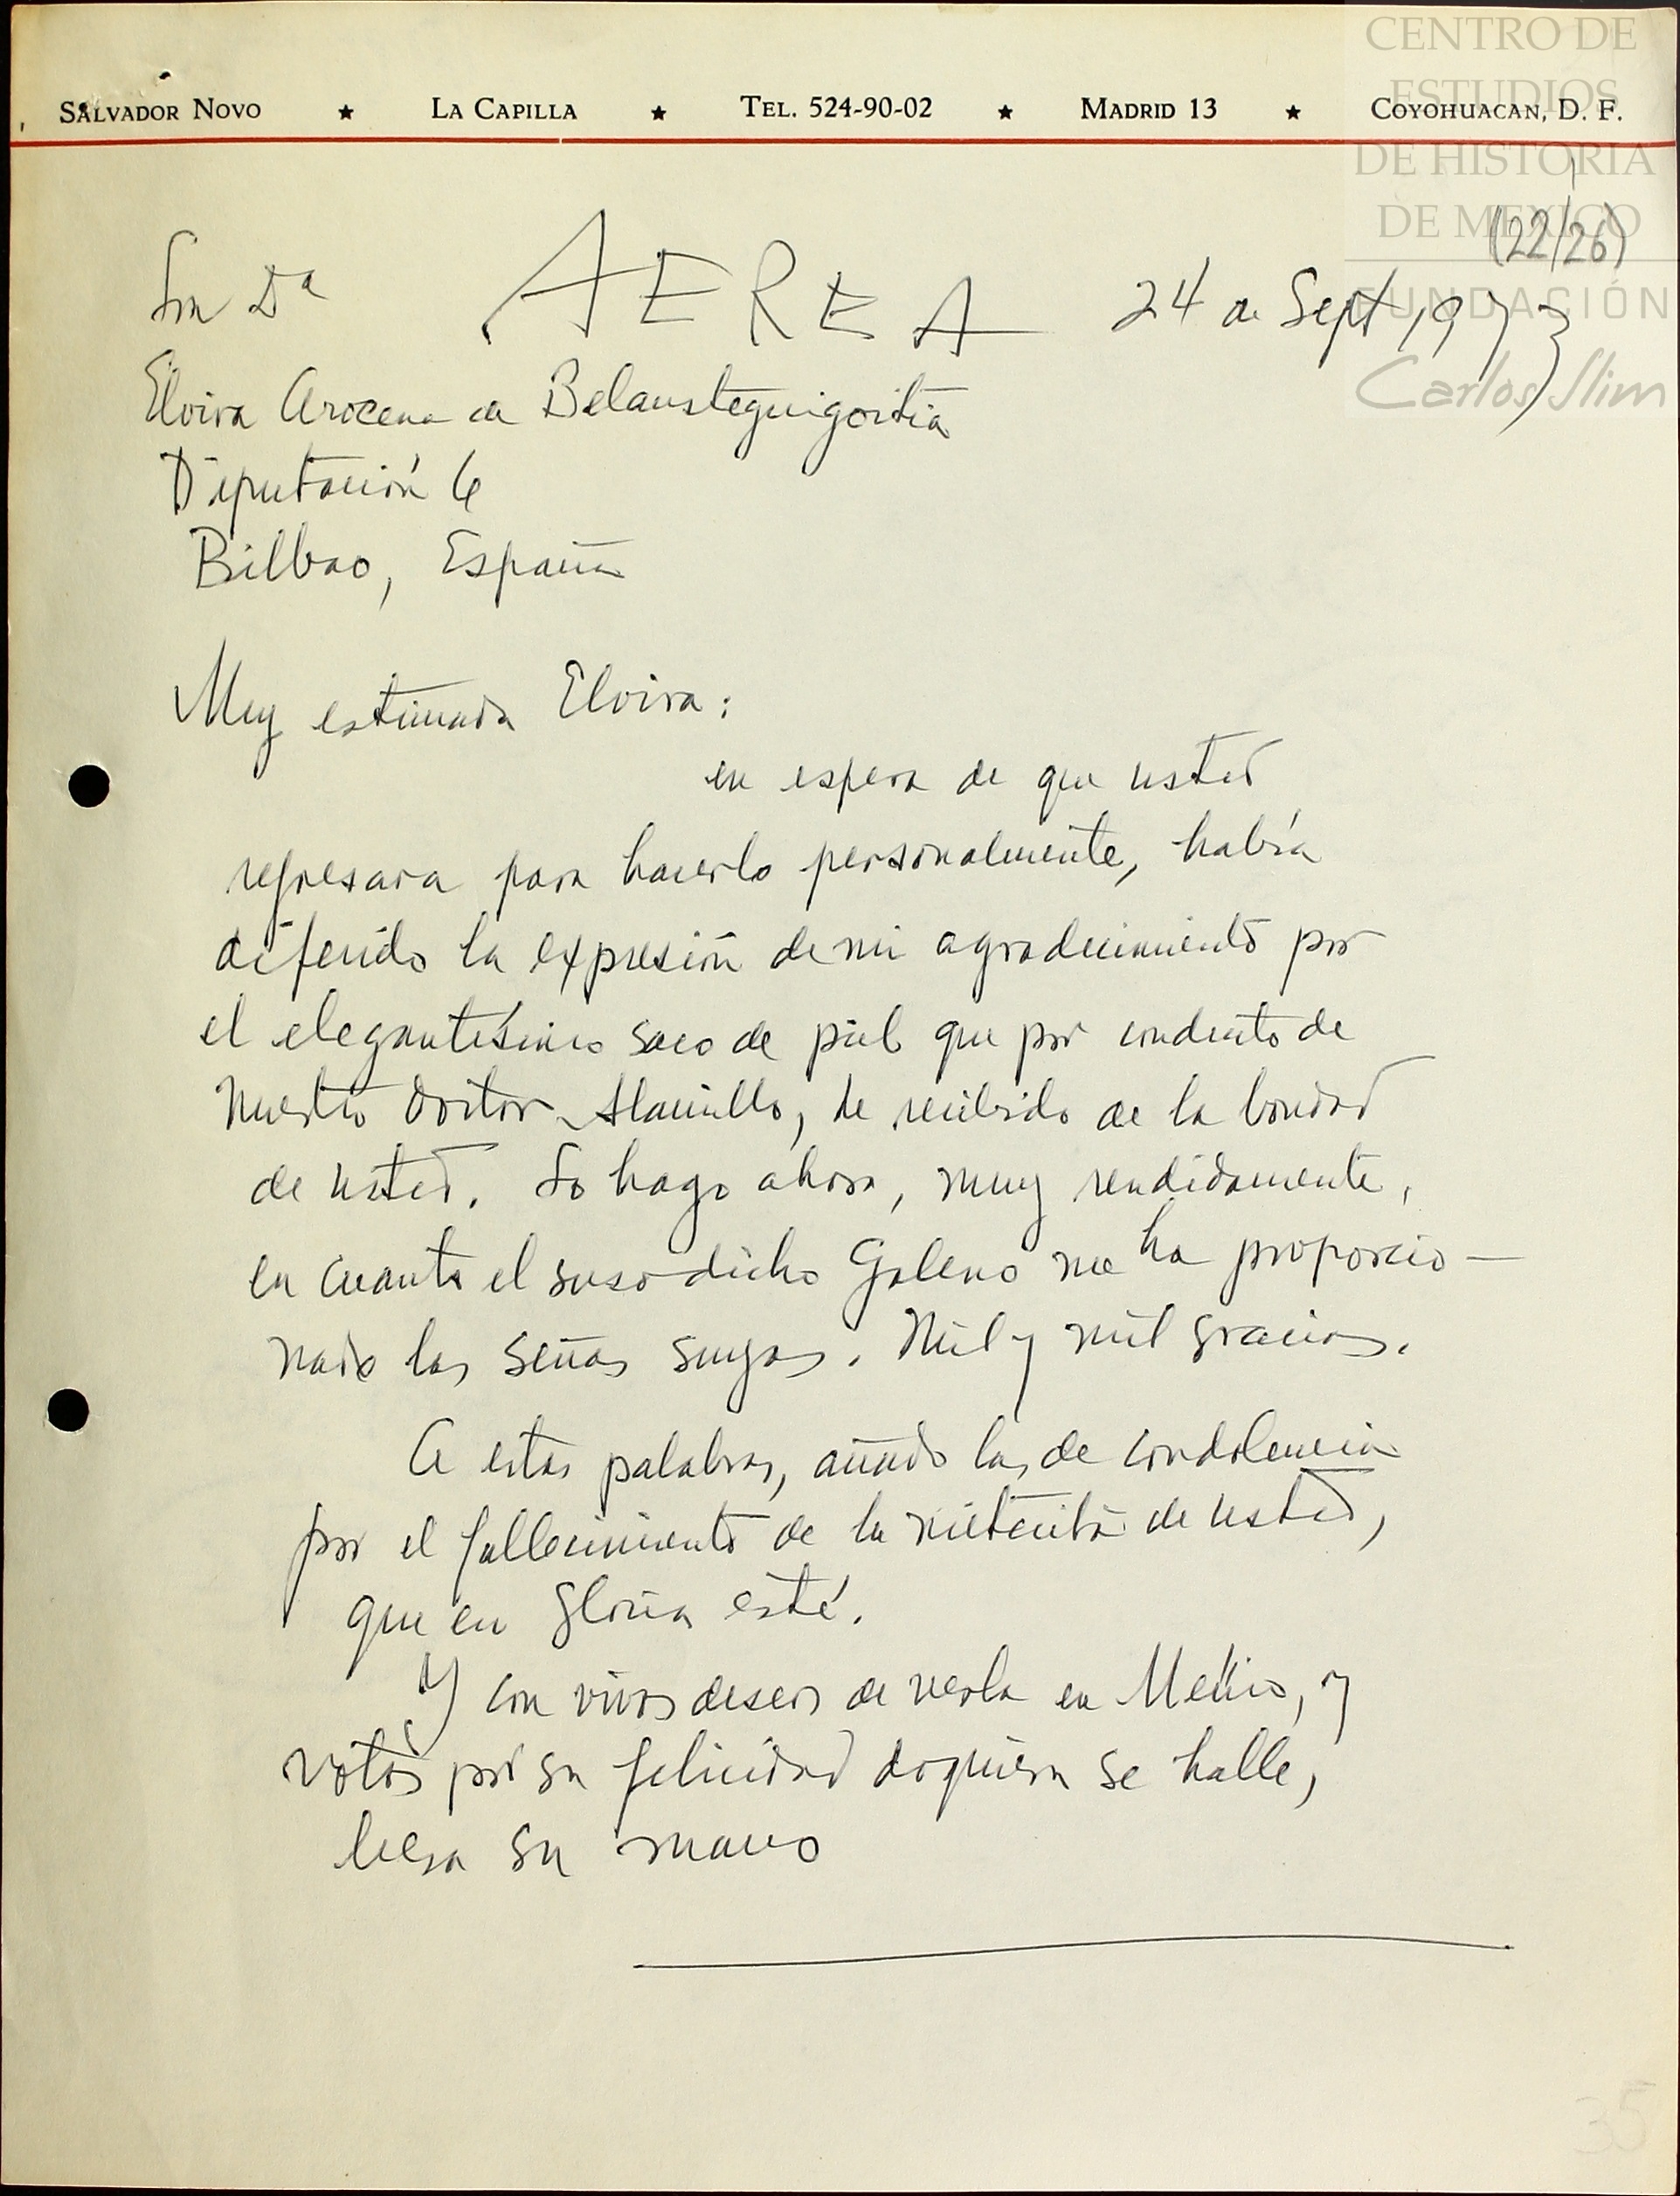 CENTRO DE
ESTUDIOS
DE HISTORIA
DE MEXICO
FUNDACIÓN
Carlos Slim
SALVADOR NOVO ★ LA CAPILLA ★ TEL. 524-90-02 ★ MADRID 13 ★ COYOHUACAN, D. F.
(22/26)
Sra Dª AEREA 24 de Sept 1973
Elvira Arocena de Belausteguigoitia
Diputación 6
Bilbao, España
Muy estimada Elvira:
en espera de que usted
regresara para hacerlo personalmente, había
diferido la expresión de mi agradecimiento por
el elegantísimo saco de piel que por conducto de
nuestro doctor, he recibido de la bondad
de usted. Lo hago ahora, muy rendidamente,
en cuanto el susodicho Galeno me ha proporcio-
nado las señas suyas. Mil y mil gracias.
A estas palabras, añado las de condolencia
por el fallecimiento de la nietecita de usted,
que en gloria esté.
Y con vivos deseos de verla en México, y
votos por su felicidad doquiera se halle,
besa su mano
35